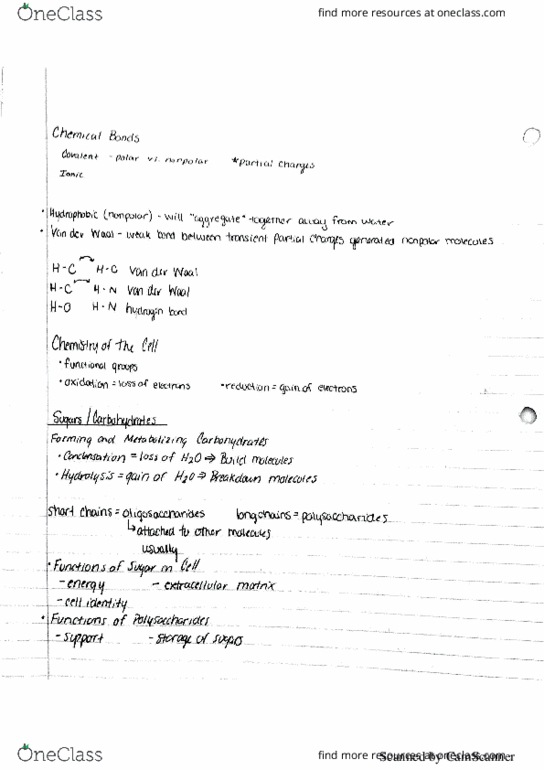 OneClass find more resources at oneclass.com
Chemical Bonds
Covalent - polar vs. nonpolar *Partial Charges
Ionic
• Hydrophobic (nonpolar) - will "aggregate" together away from water
• Van der Waal - weak bond between transient partial charges generated nonpolar molecules
H-C H-C Van der Waal
H-C H-N Van der Waal
H-O H-N hydrogen bond
Chemistry of the Cell
• functional groups
• oxidation = loss of electrons • reduction = gain of electrons
Sugars / Carbohydrates
Forming and Metabolizing Carbohydrates
• Condensation = loss of H2O ⇒ Build molecules
• Hydrolysis = gain of H2O ⇒ Breakdown molecules
Short chains = oligosaccharides long chains = polysaccharides
↳ attached to other molecules
usually
• Functions of Sugar in Cell
- energy - extracellular matrix
- cell identity
• Functions of Polysaccharides
- support - storage of sugars
OneClass find more resources at oneclass.com
Scanned by CamScanner